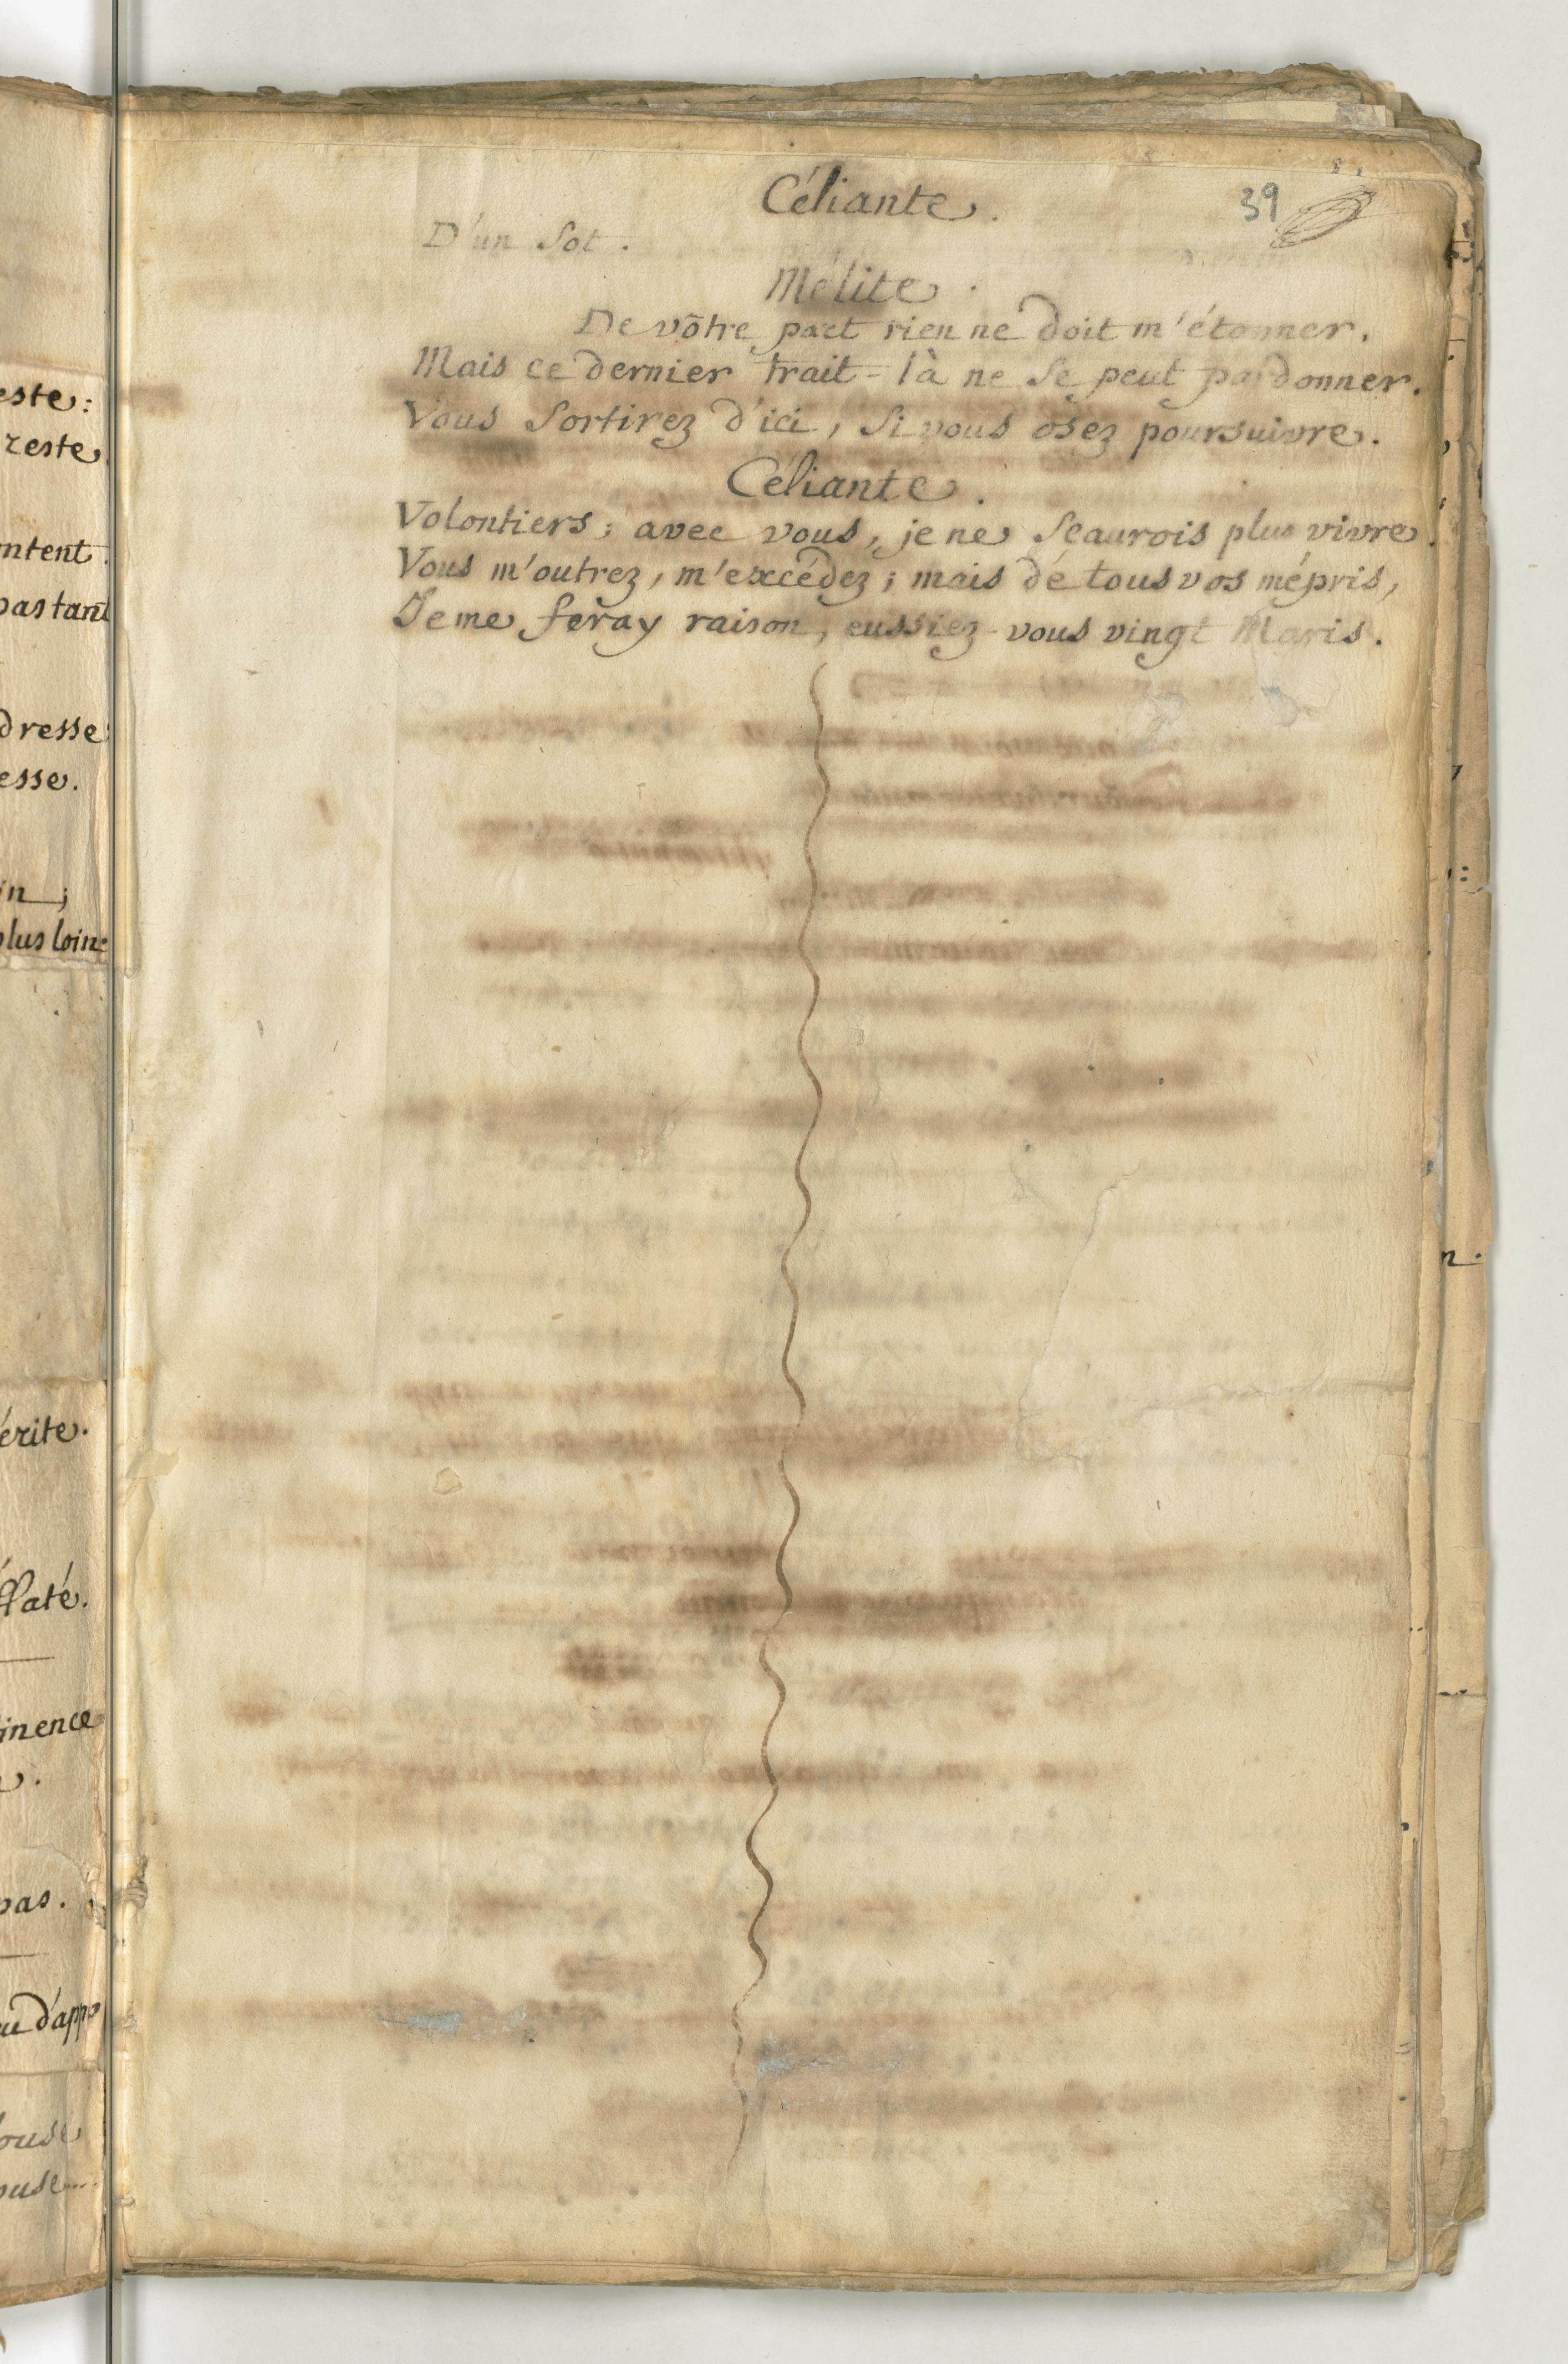 este:
reste
ntent
pas tant
dresse
esse.
in ;
plus loin
érite.
inence
pas.
ouse
ouse...
39
Céliante.
D'un Sot.
Mélite.
De vôtre part rien ne doit m'étonner.
Mais ce dernier trait-là ne se peut pardonner.
Vous Sortirez d'ici, Si vous osez poursuivre.
Céliante.
Volontiers; avec vous, je ne Sçaurois plus vivre.
Vous m'outrez, m'excédez; mais de tous vos mépris,
Je me feray raison, eussiez-vous vingt Maris.